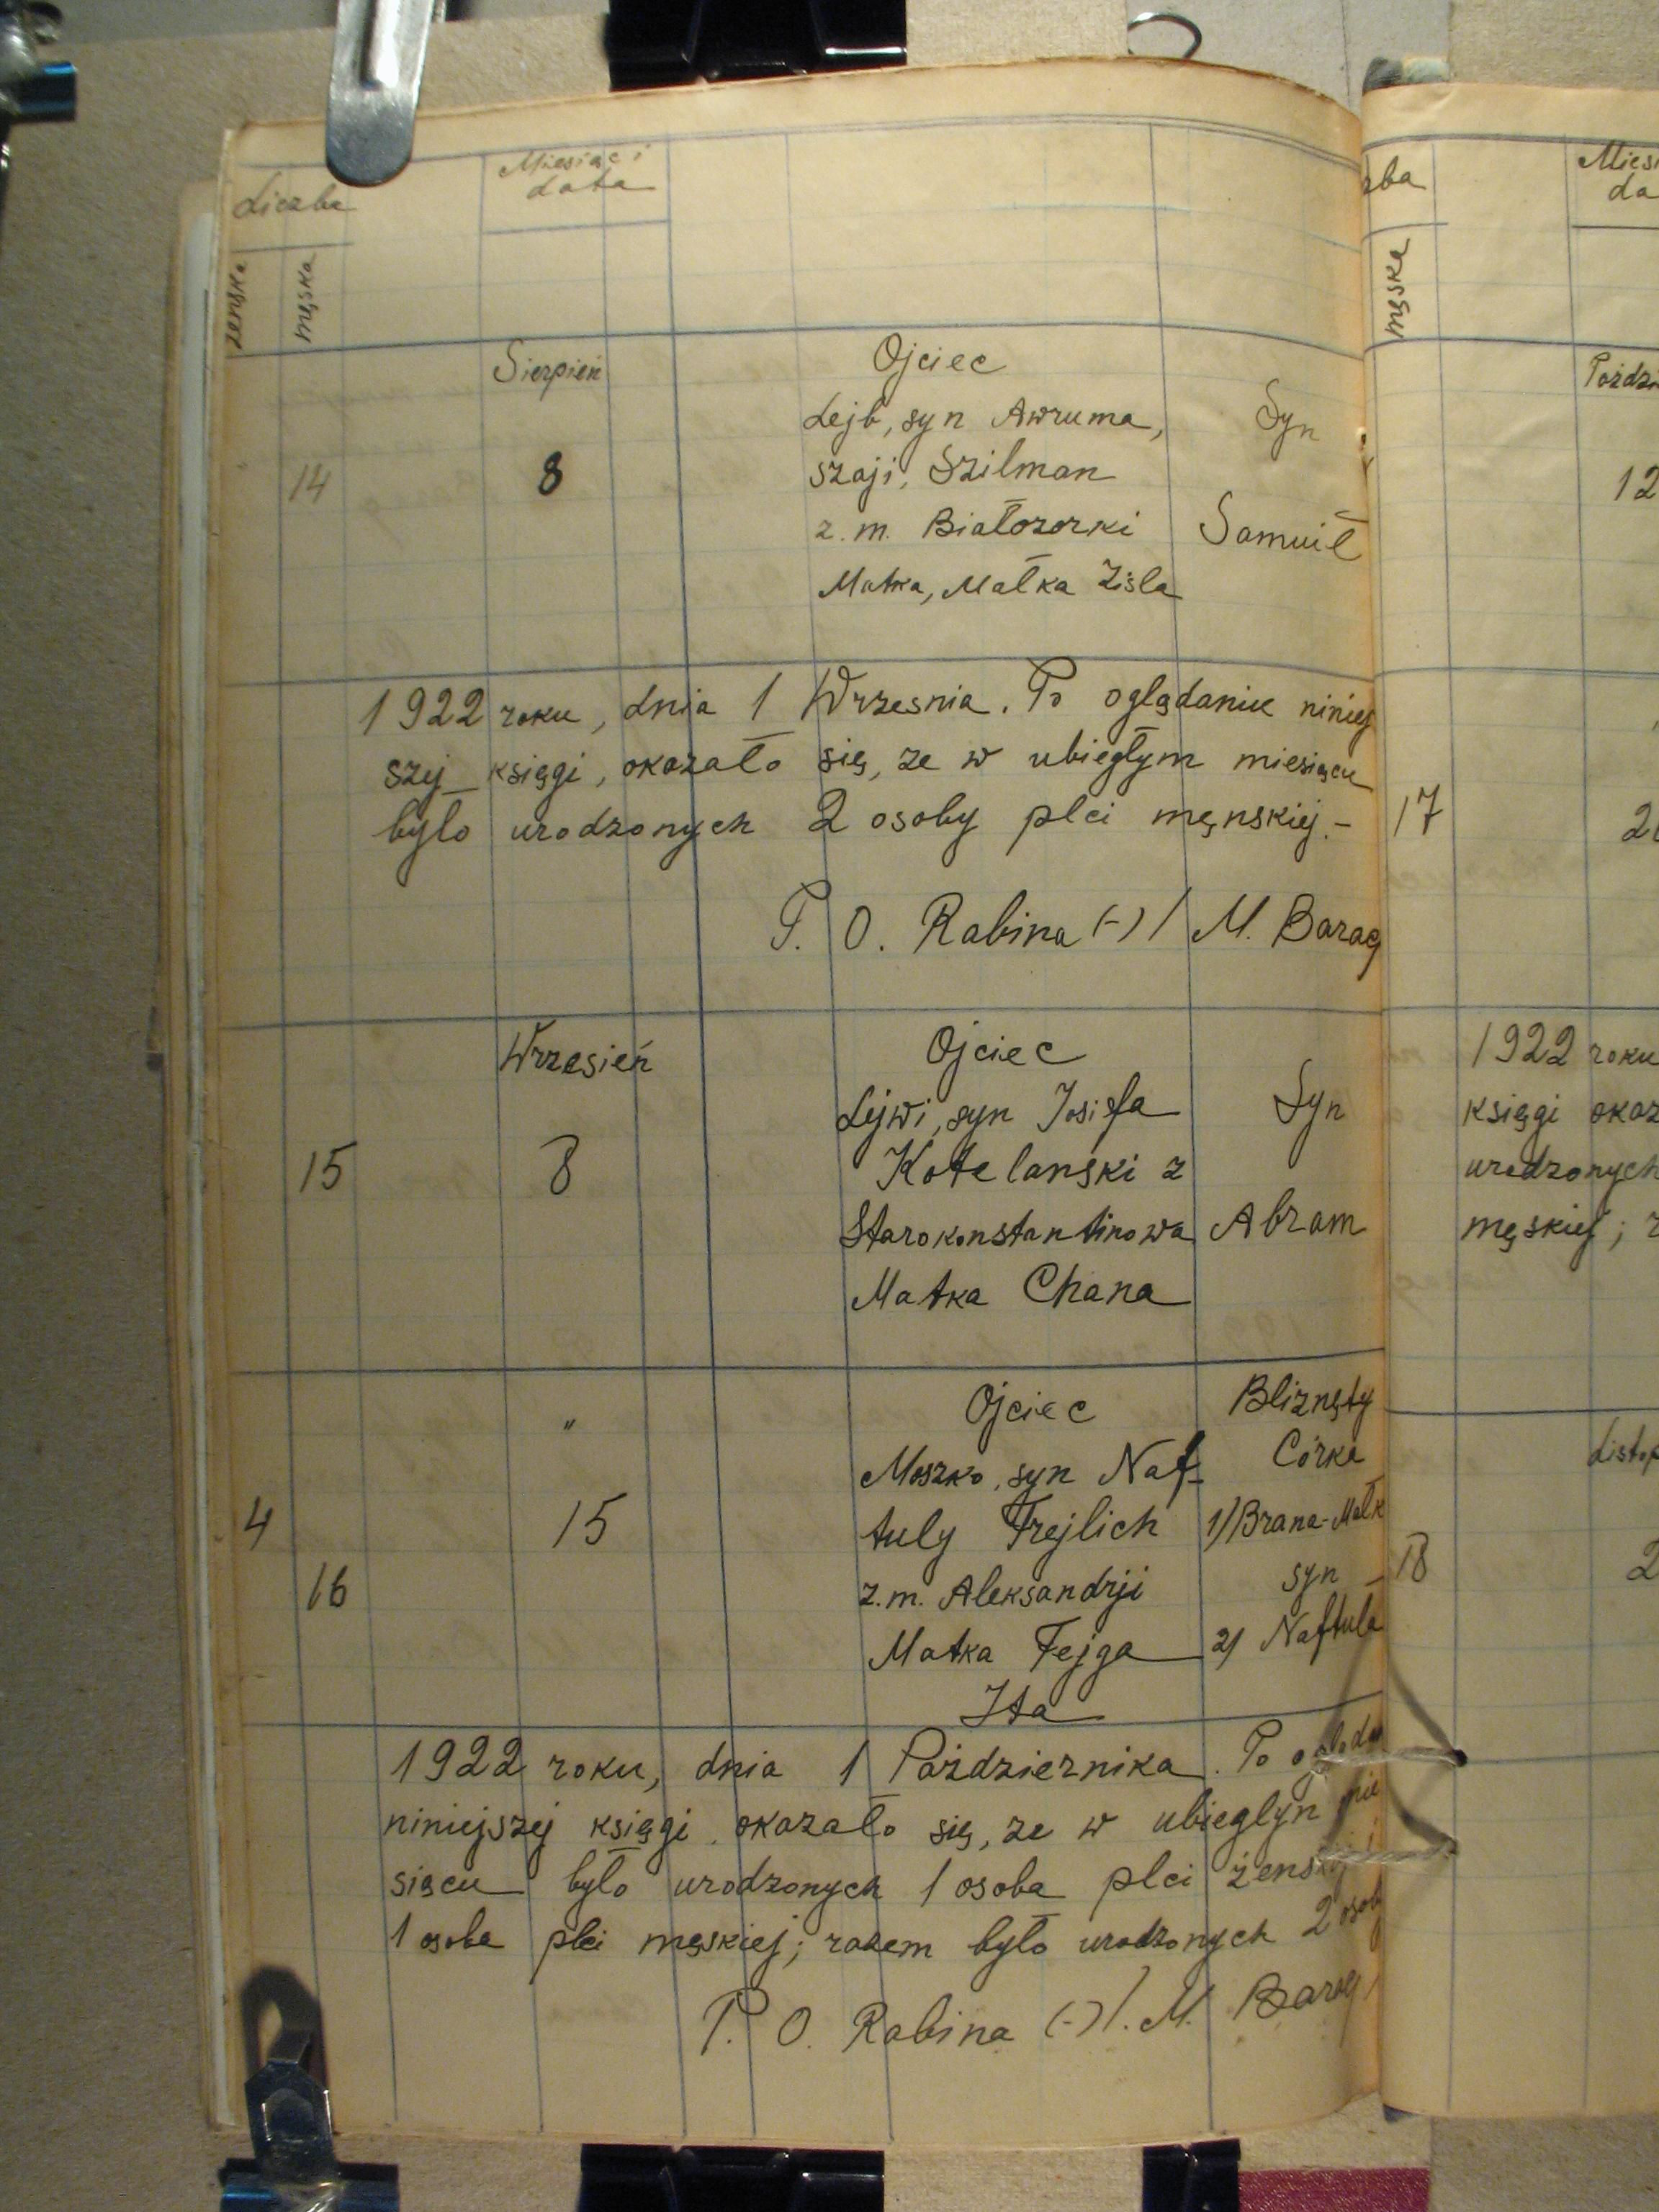 Liczba
Miesiąc i
data
żenska
męska
Sierpień
14
8
Ojciec
Lejb, syn Awruma,
szaji, Szilman
z. m. Białozorki
Matka, Małka Zisla
Syn
Samuił
1922 roku, dnia 1 Wrzesnia. Po oglądaniu niniej
szej księgi, okazało się, ze w ubiegłym miesiącu
było urodzonych 2 osoby plci męnskiej.-
P. O. Rabina (-) / M. Barag
Wrzesień
15
8
Ojciec
Lejwi, syn Josifa
Kotelanski z
Starokonstantinowa
Matka Chana
Syn
Abram
"
4
16
15
Ojciec
Moszko, syn Naf-
tuly Frejlich
z. m. Aleksandrji
Matka Fejga
Ita
Bliznęty
Córka
1) Brana-Małk
syn -
2) Naftula
1922 roku, dnia 1 Października. Po
niniejszej księgi okazało się, ze w ubieglyn mie
siącu było urodzonych 1 osoba plci
1 osoba plci męskiej; razem było urodzonych 2 osob
P. O. Rabina (-) /. M. Barag
zba
Miesi
da
męska
Paździ
12
17
2
1922 roku
księgi okaz
urodzonych
męskiej; r
Listop
18
2